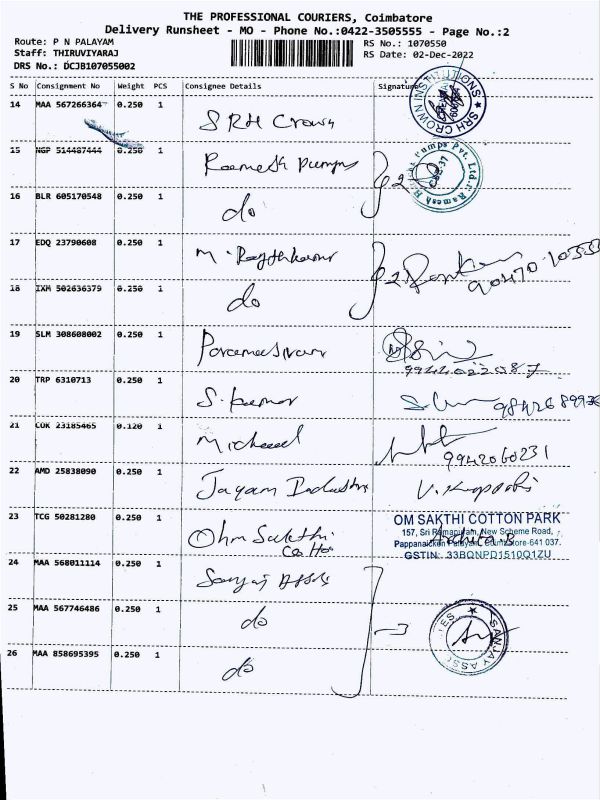 THE PROFESSIONAL COURIERS, Coimbatore
Delivery Runsheet - MO - Phone No.:0422-3505555 - Page No.:2
Route: P N PALAYAM
RS No.: 1070550
Staff: THIRUVIYARAJ
RS Date: 02-Dec-2022
DRS No.: DCJB107055002
S No Consignment No Weight PCS Consignee Details Signature
14 MAA 567266364 0.250 1 SRH Crown
SRH CROWN INSTITUTIONS
15 NGP 514487444 0.250 1 Ramesh Pumps
16 BLR 605170548 0.250 1 do
17 EDQ 23790608 0.250 1
18 IXM 502636379 0.250 1 do
19 SLM 308608002 0.250 1 Parameswaran
20 TRP 6310713 0.250 1 S. Kumar
21 COK 23185465 0.120 1 Micheael 9942060231
22 AMD 25838090 0.250 1 Jayam Industries
23 TCG 50281280 0.250 1 Ohm Sakthi
OM SAKTHI COTTON PARK
157, Sri Ramapuram, New Scheme Road,
Pappanaicken Palayam, Coimbatore-641 037.
GSTIN: 33BQNPD1510Q1ZU
24 MAA 568011114 0.250 1 Sanjay
25 MAA 567746486 0.250 1 do
26 MAA 858695395 0.250 1 do